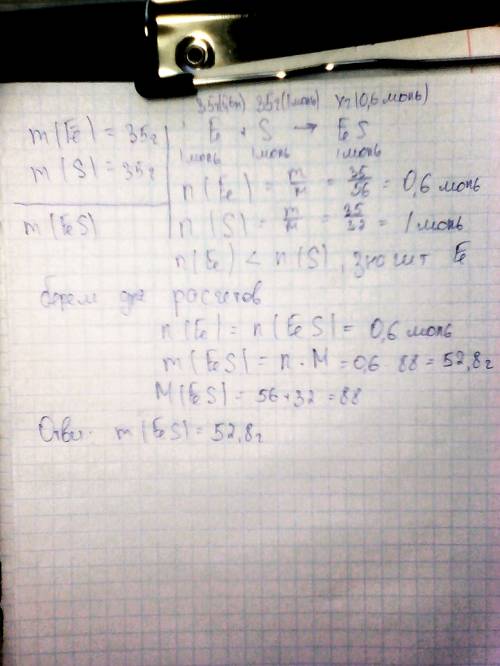 35г(0,6м) 35г(1моль) xг(0,6 моль)
m(Fe) = 35г
Fe + S → FeS
m(S) = 35г
1моль 1моль 1моль
n(Fe) = m/M = 35/56 = 0,6 моль
m(FeS)
n(S) = m/M = 35/32 = 1 моль
n(Fe) < n(S), значит Fe
берем для расчетов
n(Fe) = n(FeS) = 0,6 моль
m(FeS) = n · M = 0,6 · 88 = 52,8г
M(FeS) = 56+32 = 88
m(FeS) = 52,8г